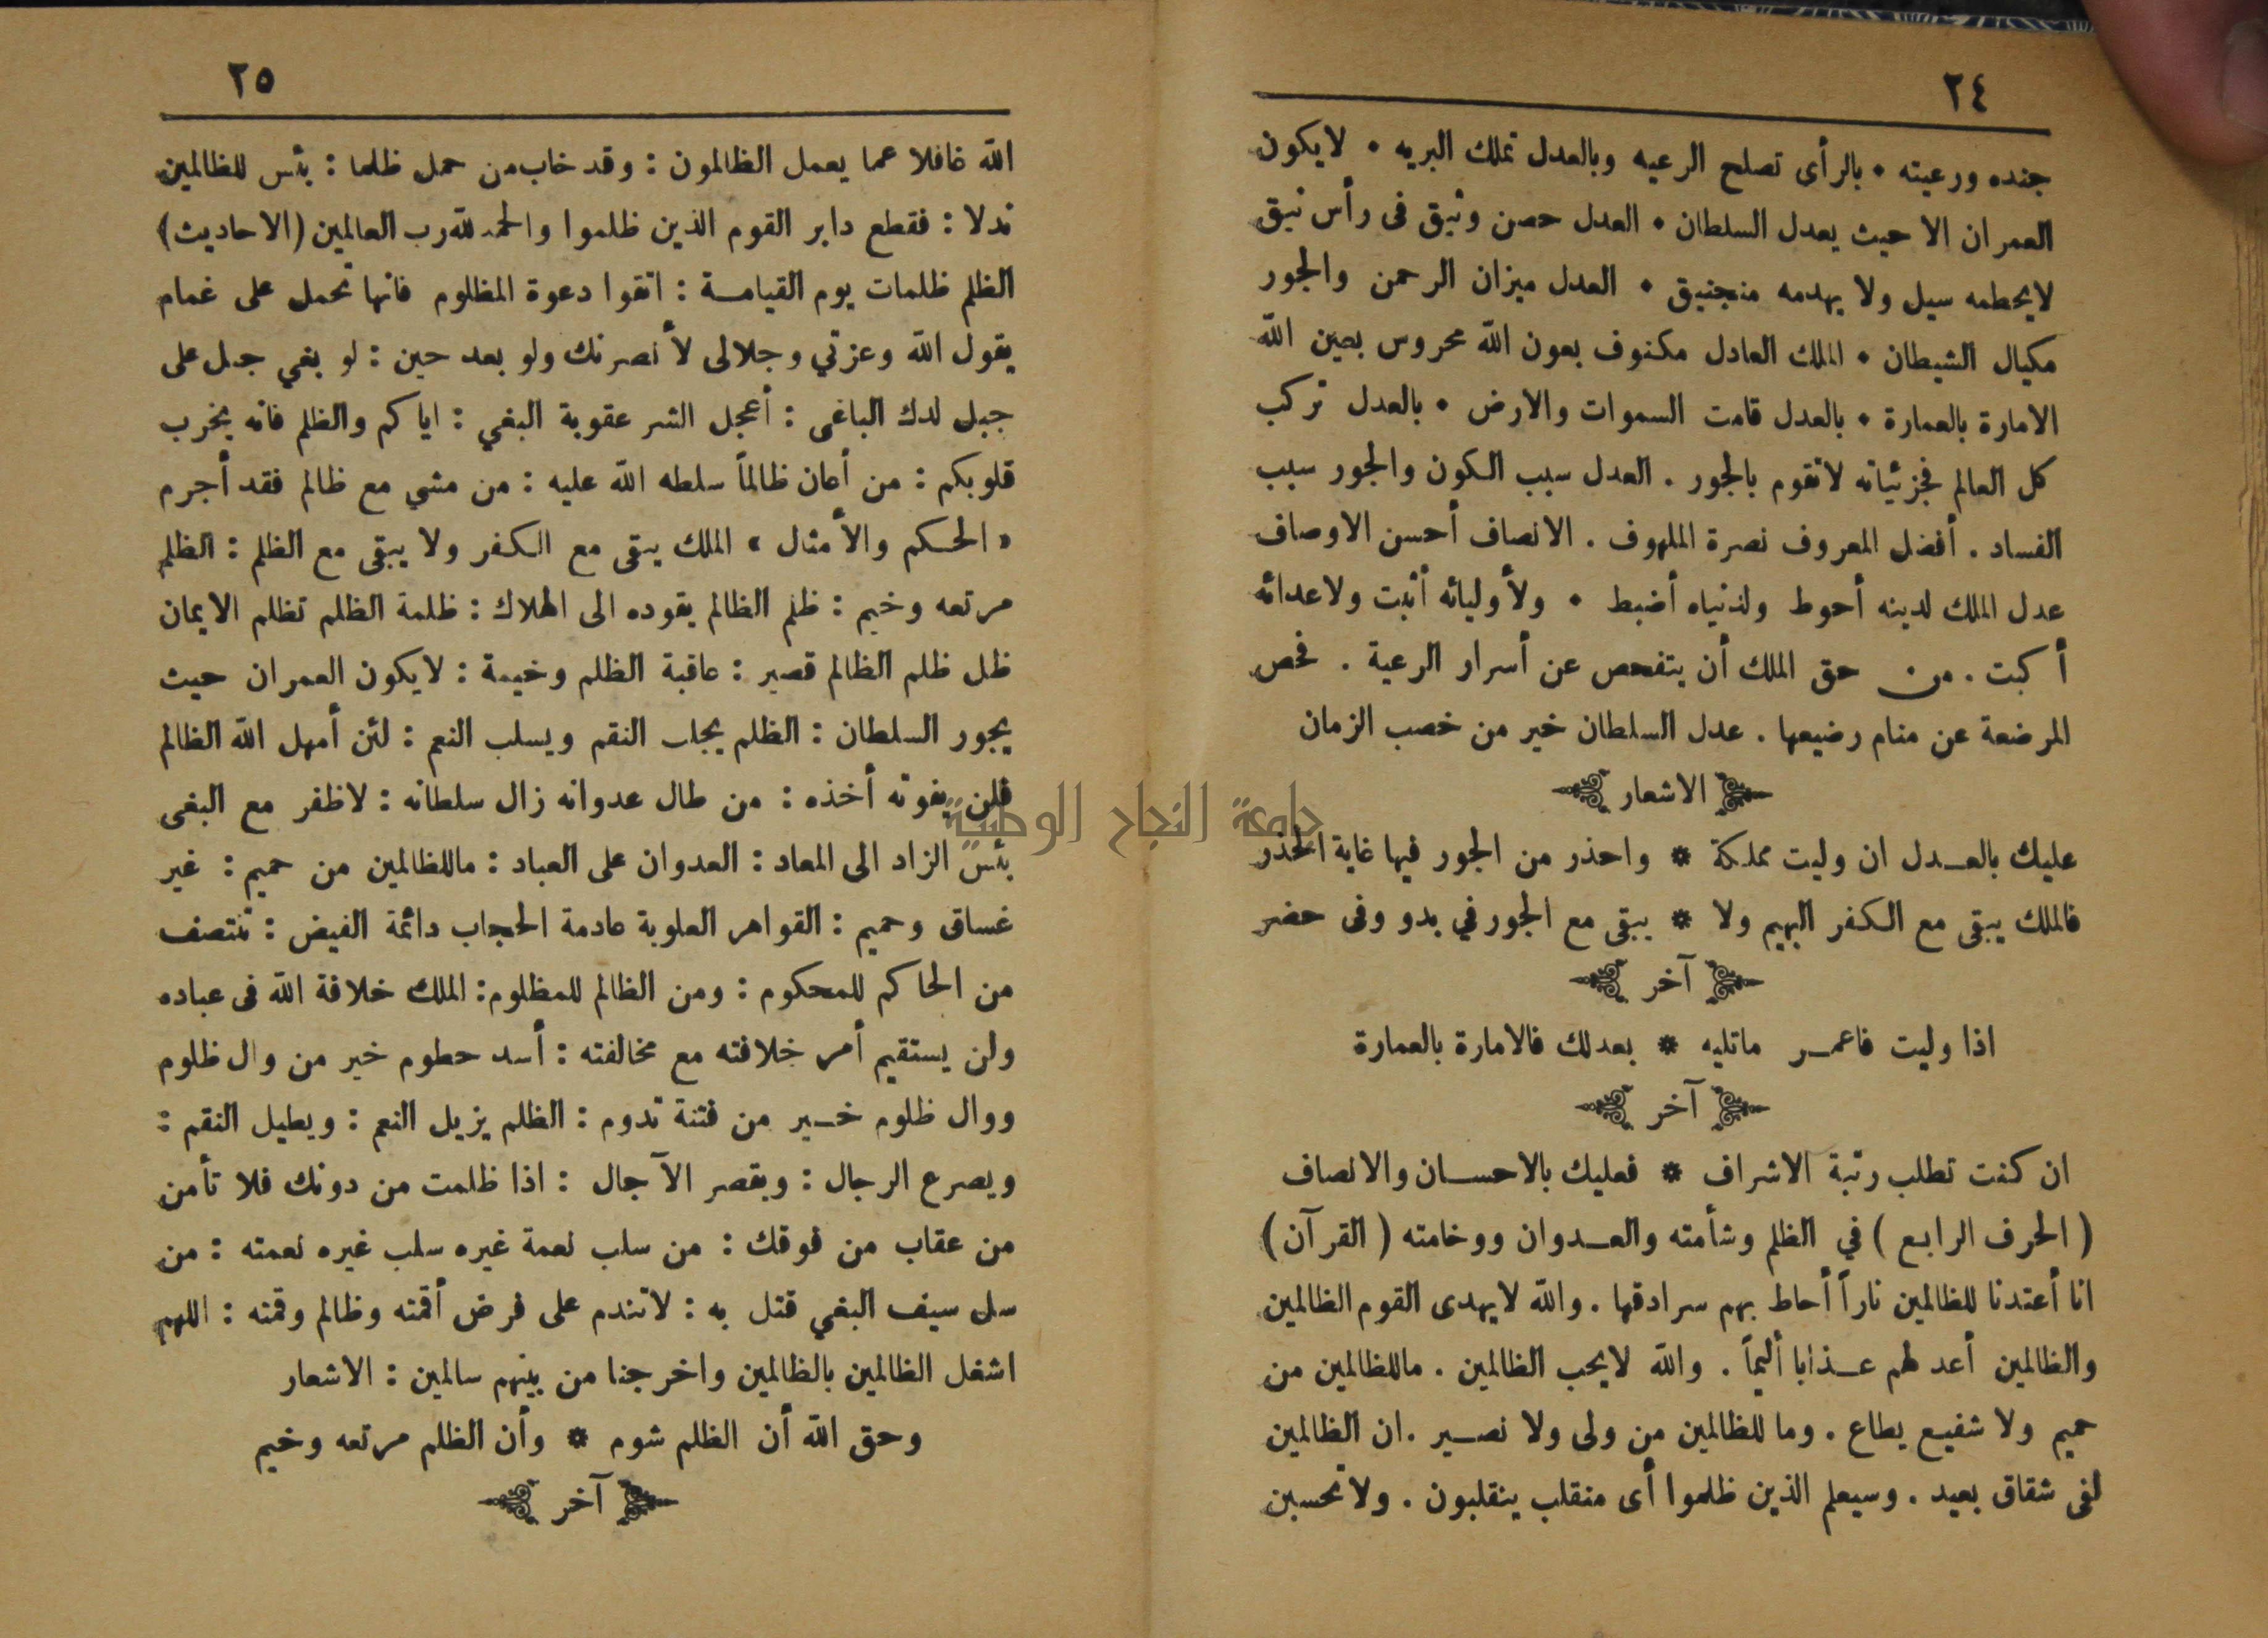 ٢٤
جنده ورعيته • بالرأى تصلح الرعيه وبالعدل تملك البريه • لايكون
العمران الا حيث يعدل السلطان • العدل حصن وثيق فى رأس نيق
لايحطمه سيل ولا يهدمه منجنيق • العدل ميزان الرحمن والجور
مكيال الشيطان • الملك العادل مكنوف بعون الله محروس بعين الله
الامارة بالعمارة • بالعدل قامت السموات والارض • بالعدل تركب
كل العالم فجزئياته لاتقوم بالجور . العدل سبب الكون والجور سبب
الفساد . أفضل المعروف نصرة الملهوف . الانصاف أحسن الاوصاف
عدل الملك لدينه أحوط ولدنياه أضبط • ولأوليائه أثبت ولاعدائه
أكبت . من حق الملك أن يتفحص عن أسرار الرعية . فحص
المرضعة عن منام رضيعها . عدل السلطان خير من خصب الزمان
الاشعار
عليك بالعـدل ان وليت مملكة * واحذر من الجور فيها غاية الحذر
فالملك يبقى مع الكفر البهيم ولا * يبقى مع الجور في بدو وفى حضر
آخر
اذا وليت فاعمـر ماتليه * بعدلك فالامارة بالعمارة
آخر
ان كنت تطلب رتبة الاشراف * فعليك بالاحسـان والانصاف
( الحرف الرابع ) في الظلم وشأمته والعـدوان ووخامته ( القرآن )
انا أعتدنا للظالمين ناراً أحاط بهم سرادقها . والله لايهدى القوم الظالمين
والظالمين أعد لهم عـذابا أليماً . والله لايحب الظالمين . ماللظالمين من
حميم ولا شفيع يطاع . وما للظالمين من ولى ولا نصـير . ان الظالمين
لفى شقاق بعيد . وسيعلم الذين ظلموا أى منقلب ينقلبون . ولاتحسبن
٢٥
الله غافلا عما يعمل الظالمون : وقد خاب من حمل ظلما : بئس للظالمين
بدلا : فقطع دابر القوم الذين ظلموا والحمد لله رب العالمين (الاحاديث)
الظلم ظلمات يوم القيامـة : اتقوا دعوة المظلوم فانها تحمل على غمام
يقول الله وعزتي وجلالى لأنصرنك ولو بعد حين : لو بغي جبل على
جبل لدك الباغى : أعجل الشر عقوبة البغي : اياكم والظلم فانه يخرب
قلوبكم : من أعان ظالماً سلطه الله عليه : من مشي مع ظالم فقد أجرم
« الحكم والأمثال » الملك يبقى مع الكفر ولا يبقى مع الظلم : الظلم
مرتعه وخيم : ظلم الظالم يقوده الى الهلاك : ظلمة الظلم تظلم الايمان
ظل ظلم الظالم قصير : عاقبة الظلم وخيمة : لايكون العمران حيث
يجور السلطان : الظلم يجلب النقم ويسلب النعم : لئن أمهل الله الظالم
فلن يفوته أخذه : من طال عدوانه زال سلطانه : لاظفر مع البغى
بئس الزاد الى المعاد : العدوان على العباد : ماللظالمين من حميم : غير
غساق وحميم : القواهر العلوية عادمة الحجاب دائمة الفيض : تنتصف
من الحاكم للمحكوم : ومن الظالم للمظلوم : الملك خلافة الله فى عباده
ولن يستقيم أمر خلافته مع مخالفته : أسد حطوم خير من وال ظلوم
ووال ظلوم خـير من فتنة تدوم : الظلم يزيل النعم : ويطيل النقم :
ويصرع الرجال : ويقصر الآجال : اذا ظلمت من دونك فلا تأمن
من عقاب من فوقك : من سلب نعمة غيره سلب غيره نعمته : من
سل سيف البغي قتل به : لاتندم على فرض أقمته وظالم وقمته : اللهم
اشغل الظالمين بالظالمين واخرجنا من بينهم سالمين : الاشعار
وحق الله أن الظلم شوم * وأن الظلم مرتعه وخيم
آخر
جامعة النجاح الوطنية